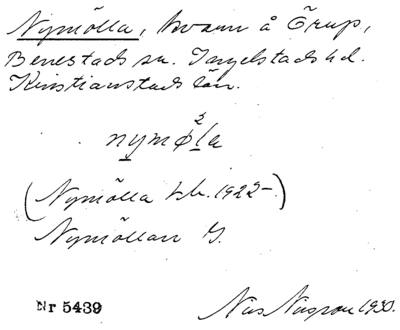 Nymölla, kvarn å Örup,
Benestads sn. Ingelstads hd.
Kristianstads län.
nymø²la
(Nymölla kb. 1922–)
Nymöllan G.
Nr 5439 Nils 1930.